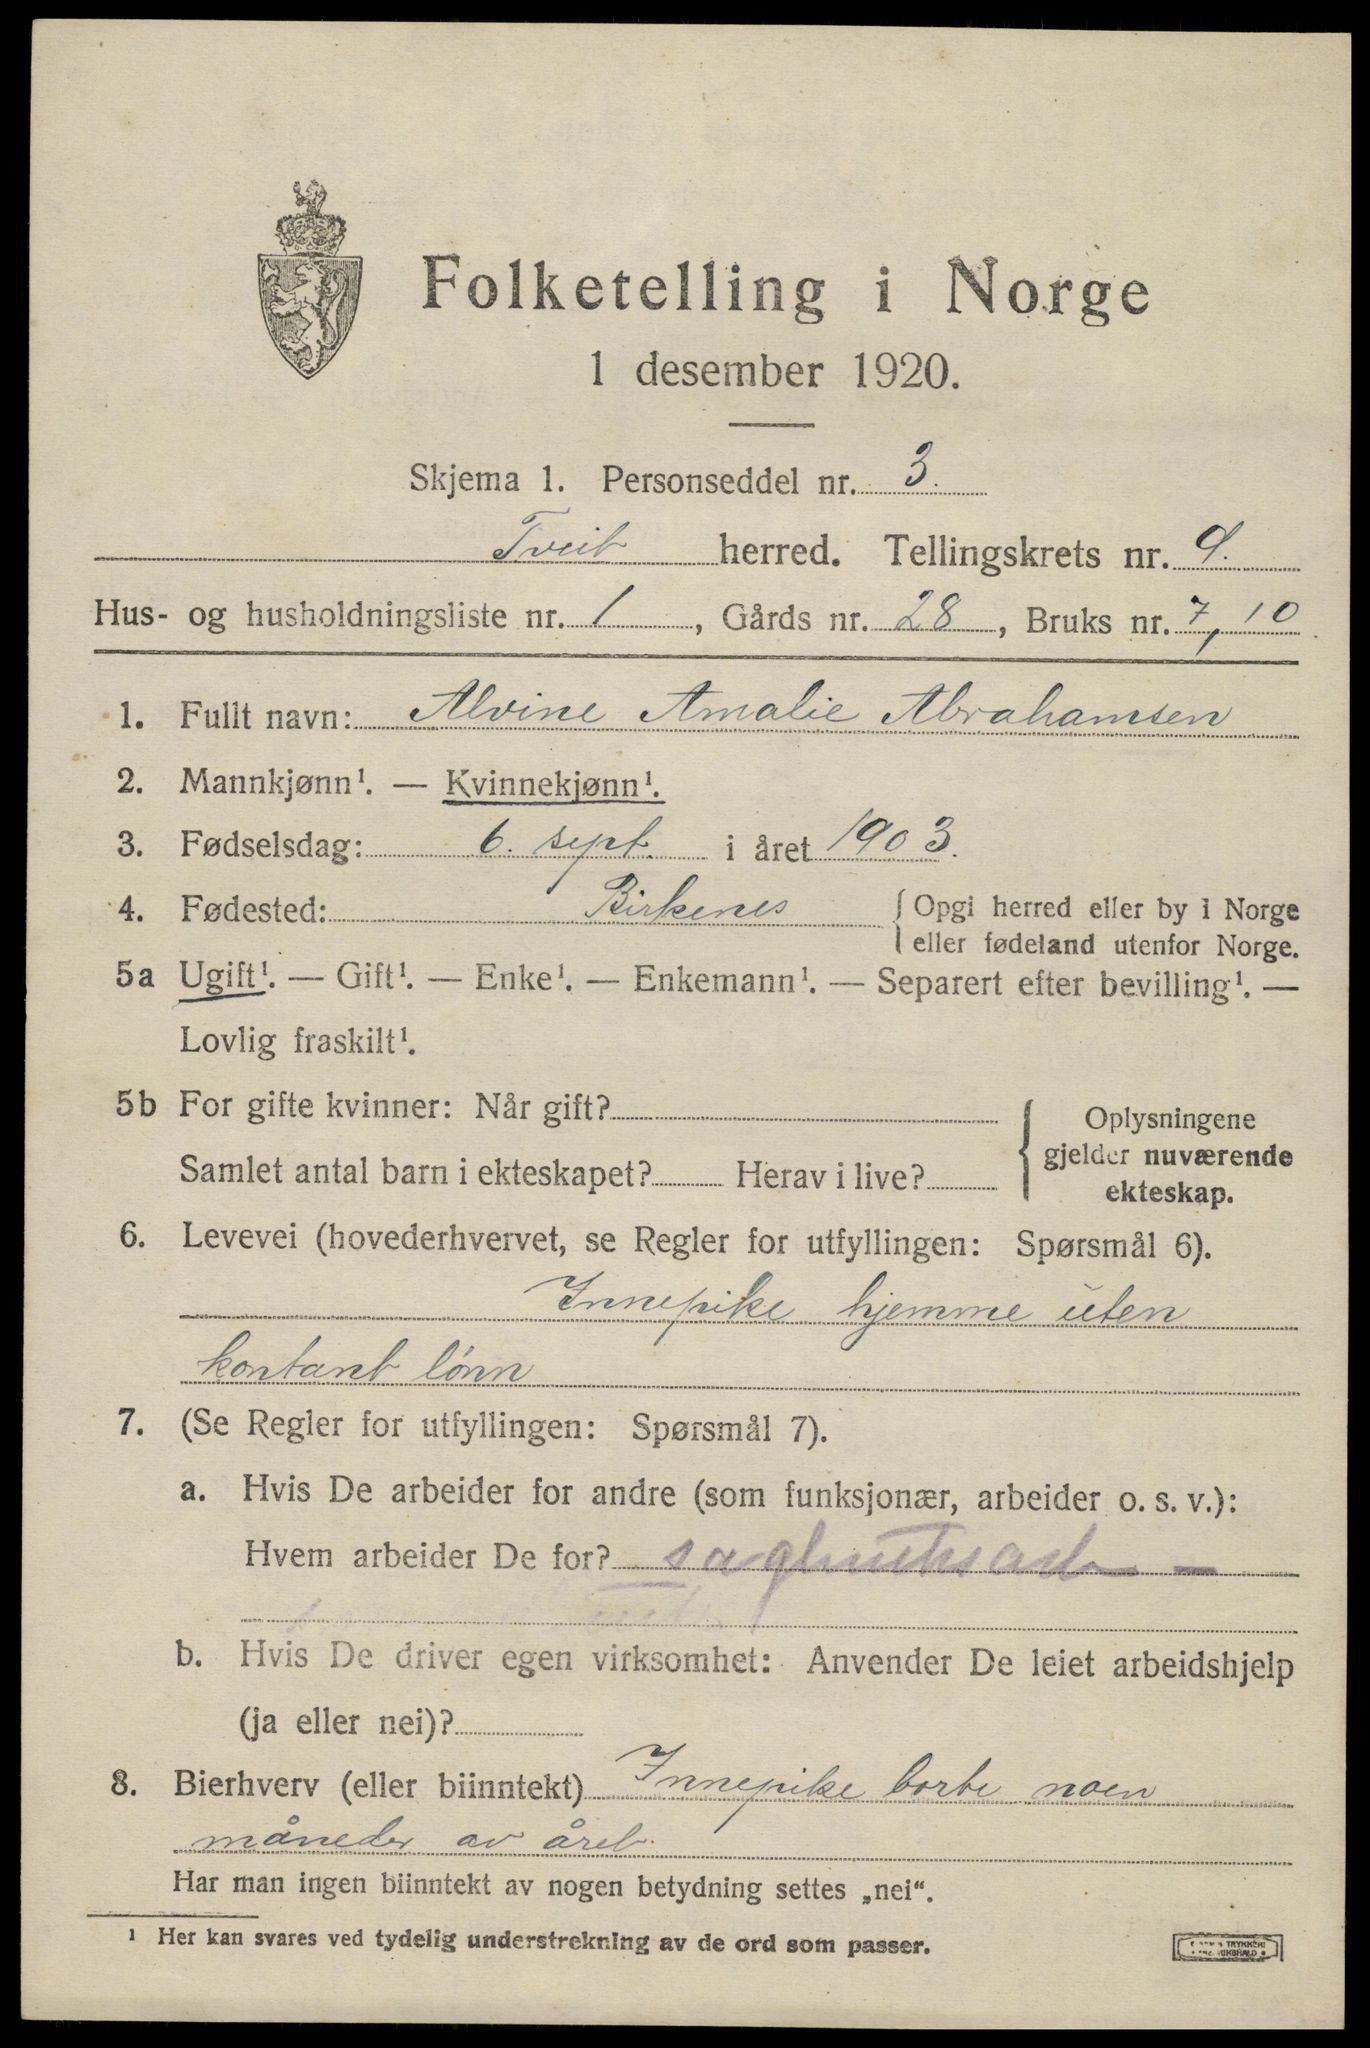 Folketelling i Norge
1 desember 1920.
Skjema 1. Personseddel nr. 3.
Tveit herred. Tellingskrets nr. 9.
Hus- og husholdningsliste nr. 1, Gårds nr. 28, Bruks nr. 7, 10
1. Fullt navn: Alvine Amalie Abrahamsen
2. Mannkjønn¹. — Kvinnekjønn¹.
3. Fødselsdag: 6. sept. i året 1903.
4. Fødested: Birkenes { Opgi herred eller by i Norge
eller fødeland utenfor Norge.
5a Ugift¹. — Gift¹. — Enke¹. — Enkemann¹. — Separert efter bevilling¹. —
Lovlig fraskilt¹.
5b For gifte kvinner: Når gift?
Samlet antal barn i ekteskapet? Herav i live?
Oplysningene
gjelder nuværende
ekteskap.
6. Levevei (hovederhvervet, se Regler for utfyllingen: Spørsmål 6).
Innepike hjemme uten
kontant lønn
7. (Se Regler for utfyllingen: Spørsmål 7).
a. Hvis De arbeider for andre (som funksjonær, arbeider o. s. v.):
Hvem arbeider De for?
b. Hvis De driver egen virksomhet: Anvender De leiet arbeidshjelp
(ja eller nei)?
8. Bierhverv (eller biinntekt) Innepike borte noen
måneder av året.
Har man ingen biinntekt av nogen betydning settes „nei“.
¹ Her kan svares ved tydelig understrekning av de ord som passer.